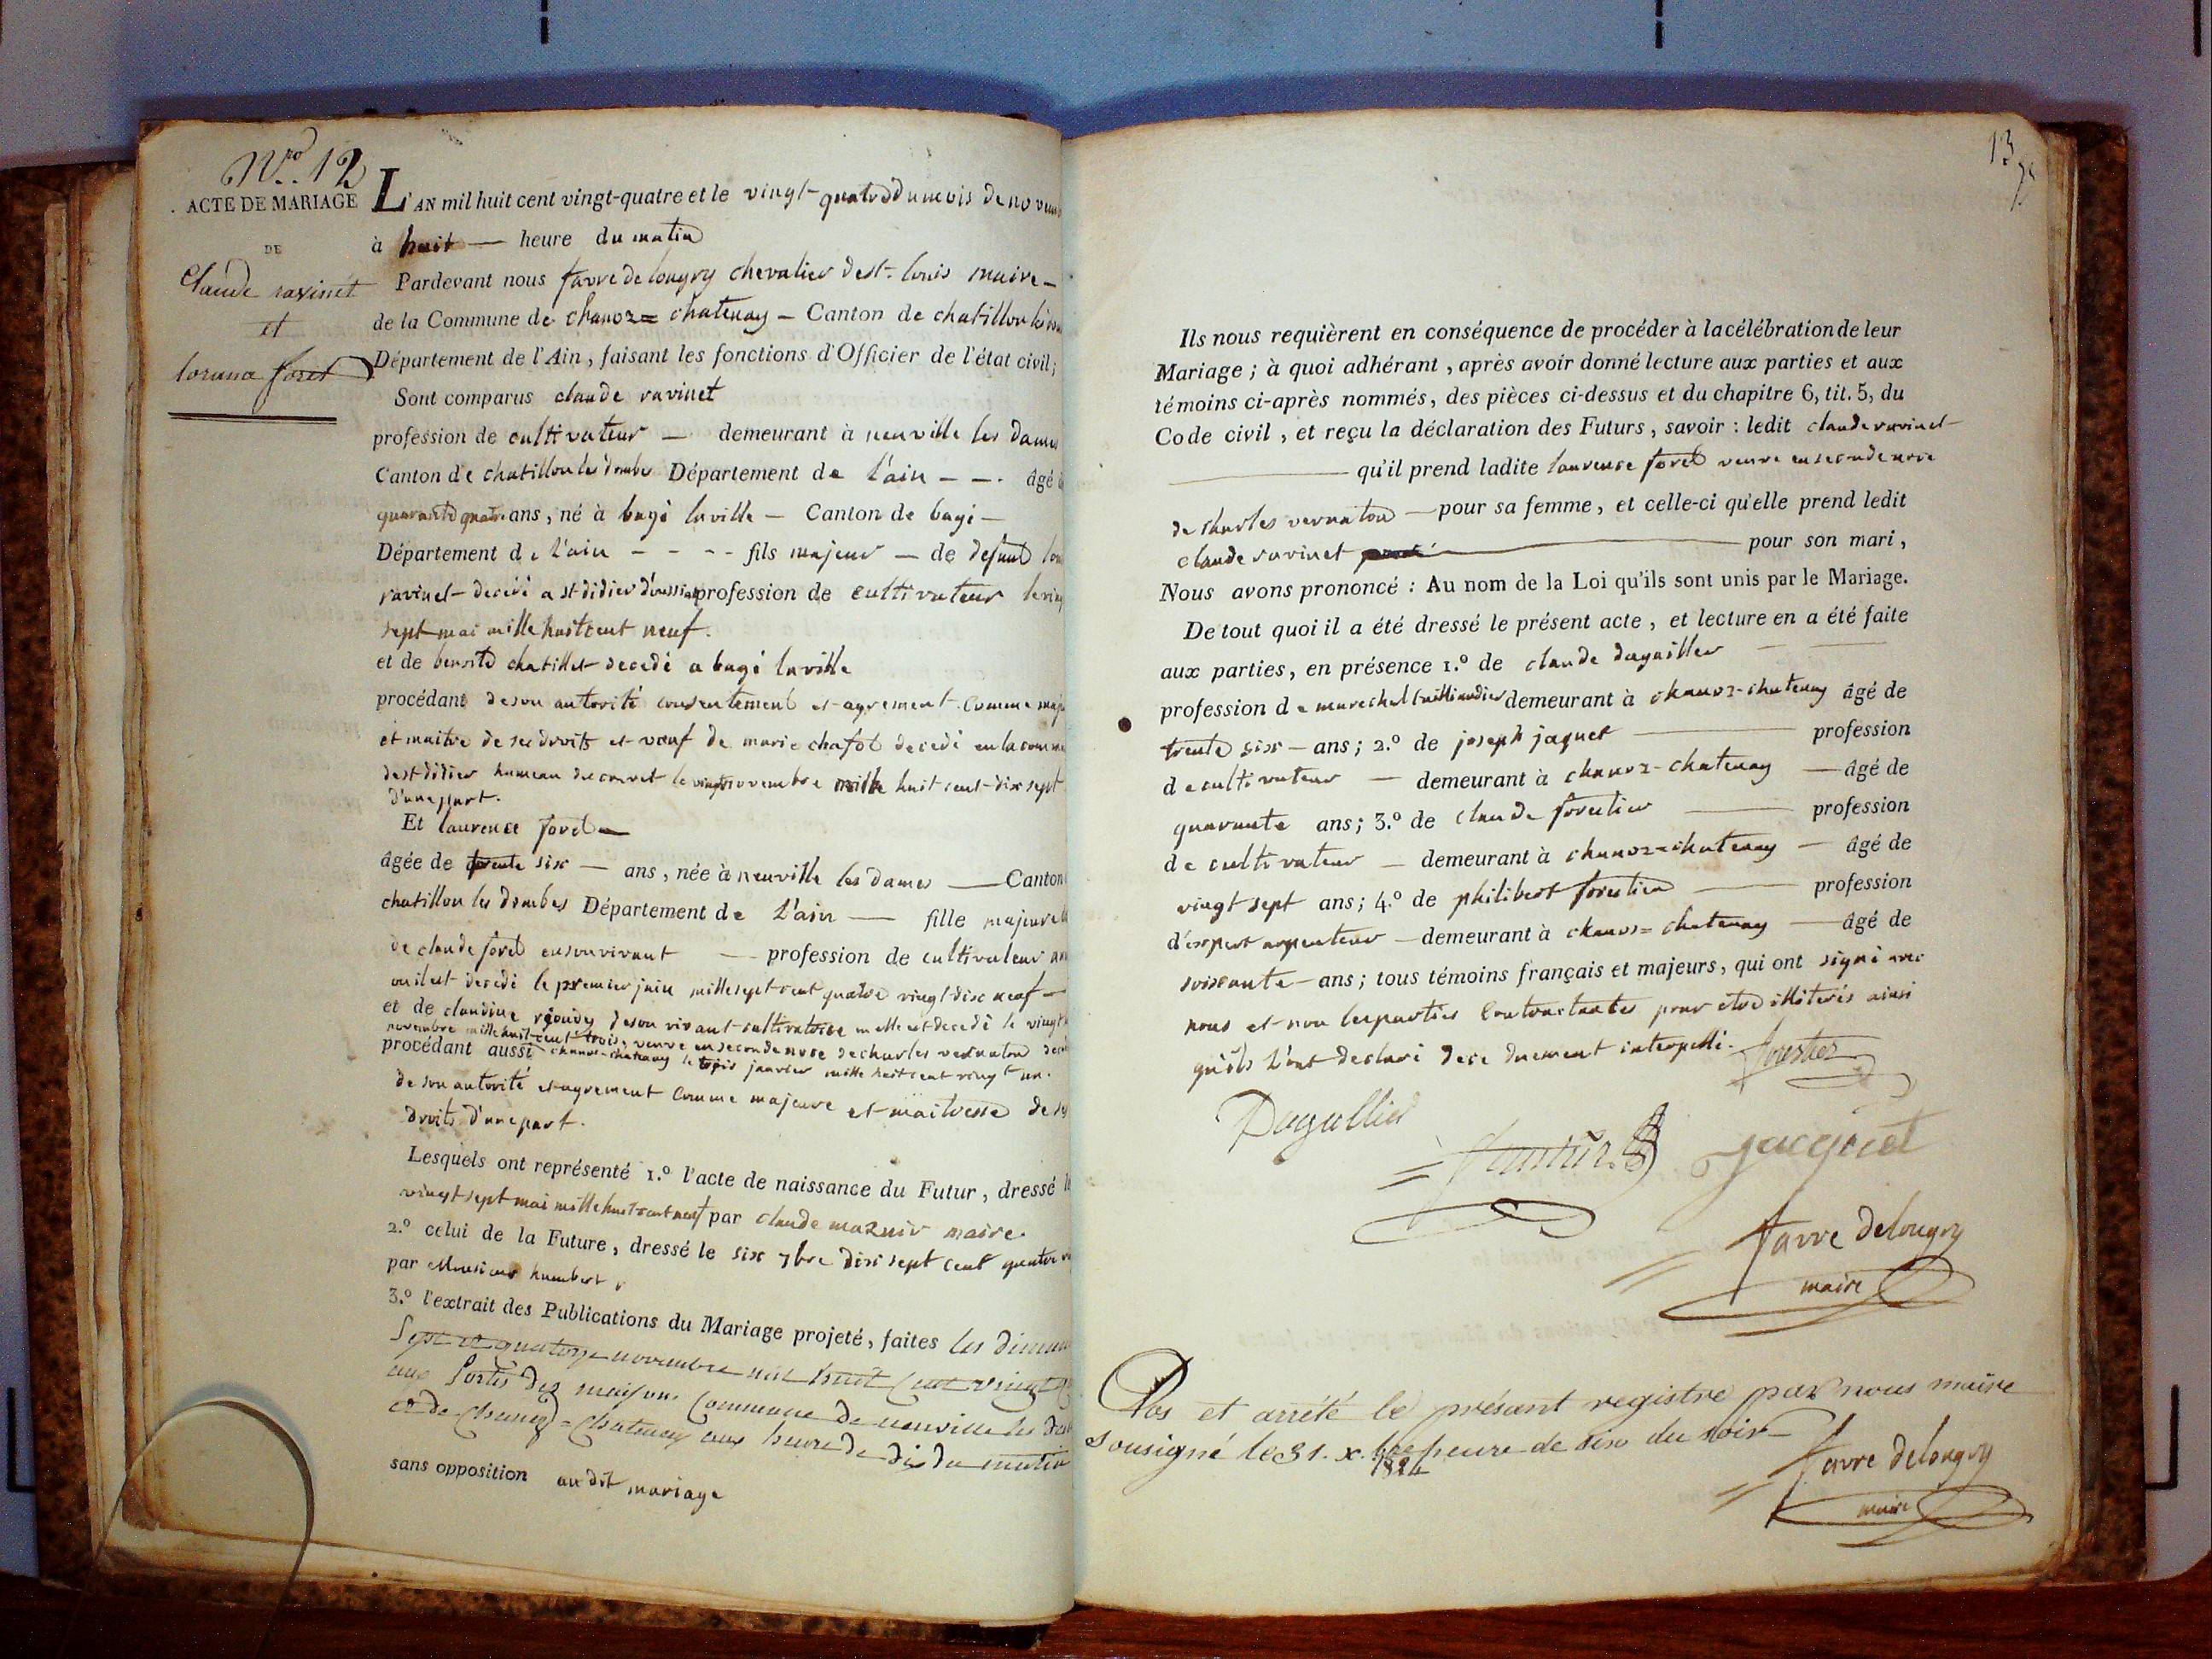 Nro. 12
ACTE DE MARIAGE
DE
Claude ravinet
et
forel
L'AN mil huit cent vingt-quatre et le vingt-quatre du mois de novem
à huit — heure du matin
Pardevant nous favre de longry chevalier de st. louis maire —
de la Commune de chanoz = chatenay — Canton de chatillon les
Département de l'Ain, faisant les fonctions d'Officier de l'état civil;
Sont comparus claude ravinet
profession de cultivateur — demeurant à neuville les dames
Canton de chatillon les dombes Département de l'ain — —. âgé
quarante quatre ans, né à bagé laville — Canton de bagé —
Département de l'ain - - - - fils majeur — de defunt
ravinet decédé a st didier profession de cultivateur le
sept mai mille huit cent neuf.
et de chatillet decedé a bagé laville
procédant de son autorité consentement et agrement. Comme
et maitre de ses droits et veuf de marie chafol decedé en la
de st didier hameau du le novembre mille huit cent dix sept
d'une part.
Et laurence forel —
âgée de trente six — ans, née à neuville les dames — Canton
chatillon les dombes Département de l'ain — fille majeure
de claude forel en son vivant — profession de cultivateur
ou il est decédé le premier juin mille sept cent quatre vingt dix neuf —
et de claudine de son vivant cultivatrice ou elle est decedé le vingt
novembre mille huit cent trois, veuve en seconde noce de charles vernaton
procédant aussi chanoz-chatenay le trois janvier mille huit cent vingt un.
de son autorité et agrement comme majeure et maitresse de ses
droits d'une part.
Lesquels ont représenté 1.º l'acte de naissance du Futur, dressé
vingt sept mai mille huit cent neuf par claude maire
2.º celui de la Future, dressé le six 7bre dix sept cent quatre
par Monsieur humbert
3.º l'extrait des Publications du Mariage projeté, faites les
Sept et quatorze novembre mil huit cent vingt
aux Portes des maisons Commune de neuville les
et de Chanoz = Chatenay aux heure de dix du matin
sans opposition au dit mariage
13
Ils nous requièrent en conséquence de procéder à la célébration de leur
Mariage; à quoi adhérant, après avoir donné lecture aux parties et aux
témoins ci-après nommés, des pièces ci-dessus et du chapitre 6, tit. 5, du
Code civil, et reçu la déclaration des Futurs, savoir : ledit claude ravinet
— qu'il prend ladite laurence forel veuve en seconde noce
de charles vernaton — pour sa femme, et celle-ci qu'elle prend ledit
claude ravinet — pour son mari,
Nous avons prononcé : Au nom de la Loi qu'ils sont unis par le Mariage.
De tout quoi il a été dressé le présent acte, et lecture en a été faite
aux parties, en présence 1.º de claude dagallier —
profession de marechal taillandier demeurant à chanoz-chatenay âgé de
trente six — ans; 2.º de joseph jaquet — profession
de cultivateur — demeurant à chanoz-chatenay — âgé de
quarante ans; 3.º de claude forestier — profession
de cultivateur — demeurant à chanoz=chatenay — âgé de
vingt sept ans; 4.º de philibert forestier — profession
d'expert arpenteur — demeurant à chanoz=chatenay — âgé de
soixante — ans; tous témoins français et majeurs, qui ont signé avec
nous et non les parties Contractantes pour etre illiterés ainsi
qu'ils l'ont declaré de ce duement interpellé.
forestier
Dagallier
jacquet
favre delongry
maire
Clos et arrêté le présent registre par nous maire
sousigné le 31. x.bre heure de six du soir
1824
favre delongry
maire